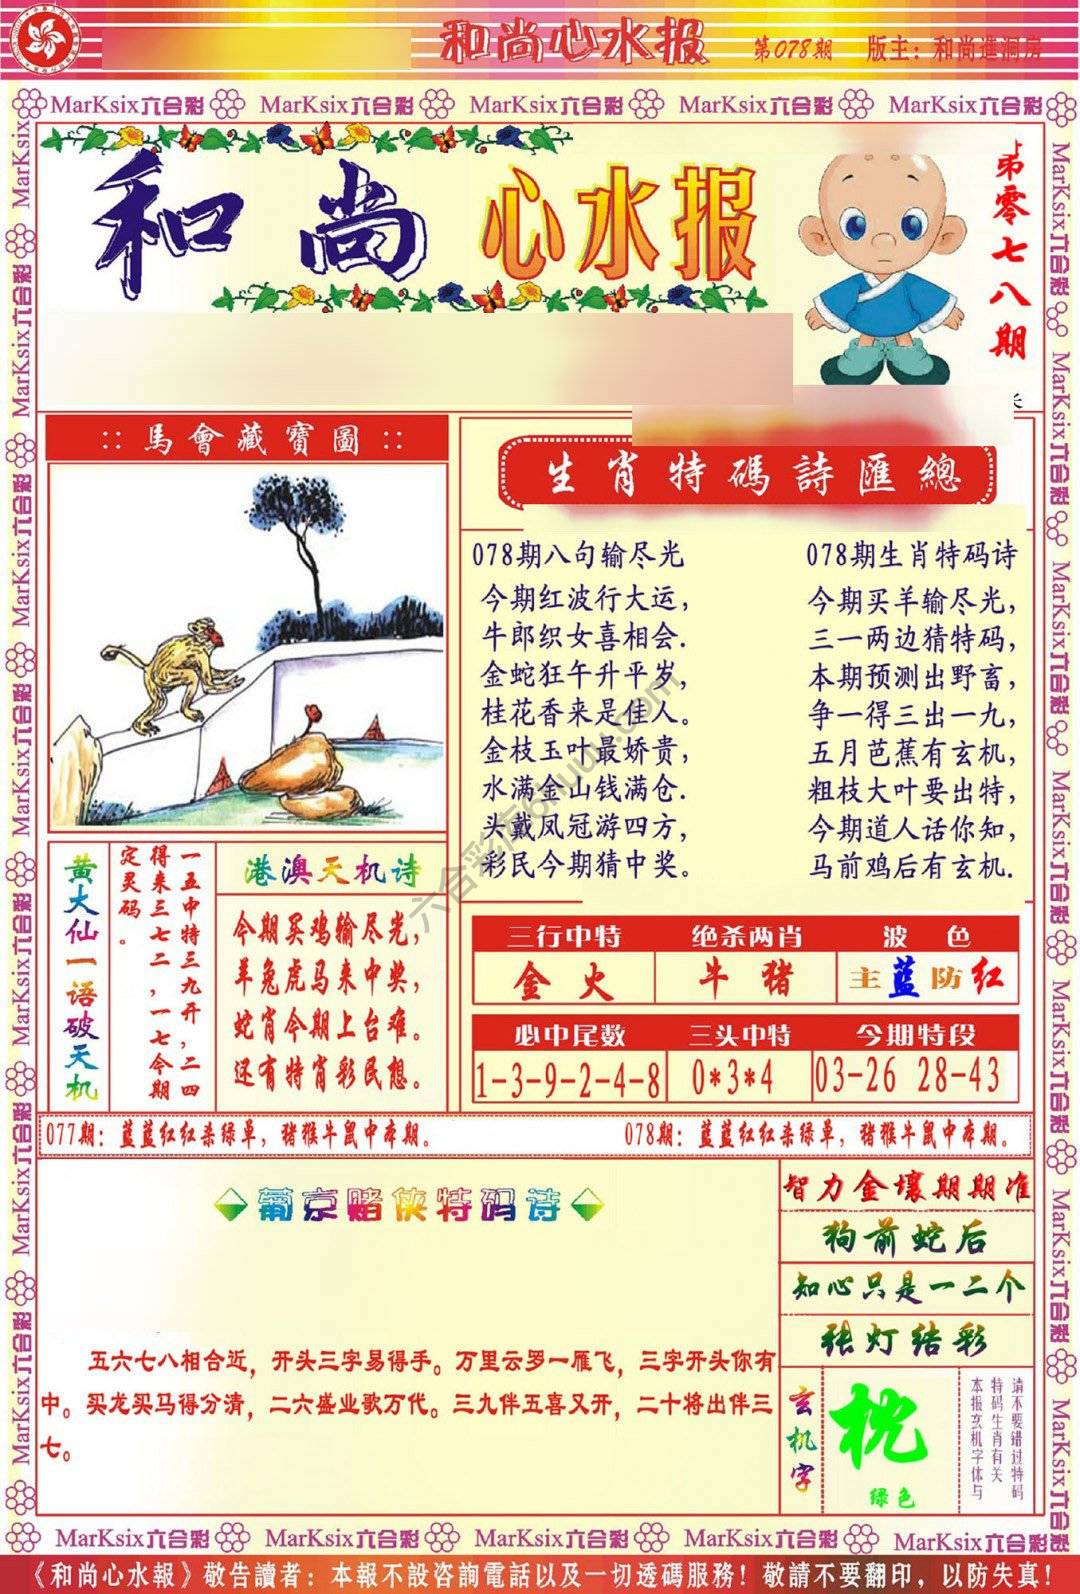 和尚心水报 第078期 版主：和尚進洞房
MarKsix六合彩 MarKsix六合彩 MarKsix六合彩 MarKsix六合彩 MarKsix六合彩
和尚心水报
第零七八期
::馬會藏寶圖::
生肖特碼詩匯總
078期八句输尽光
今期红波行大运，
牛郎织女喜相会.
金蛇狂午升平岁，
桂花香来是佳人。
金枝玉叶最娇贵，
水满金山钱满仓.
头戴凤冠游四方，
彩民今期猜中奖。
078期生肖特码诗
今期买羊输尽光，
三一两边猜特码，
本期预测出野畜，
争一得三出一九，
五月芭蕉有玄机，
粗枝大叶要出特，
今期道人话你知，
马前鸡后有玄机.
黄大仙一语破天机
一五中特三九开，二四
得来三七二，一七今期
定灵码。
港澳天机诗
今期买鸡输尽光，
羊兔虎马来中奖，
蛇肖今期上台难。
还有特肖彩民想。
三行中特 绝杀两肖 波色
金火 牛猪 主蓝防红
必中尾数 三头中特 今期特段
1-3-9-2-4-8 0*3*4 03-26 28-43
077期：蓝蓝红红杀绿单，猪猴牛鼠中本期。
078期：蓝蓝红红杀绿单，猪猴牛鼠中本期。
葡京赌侠特码诗
五六七八相合近，开头三字易得手。万里云罗一雁飞，三字开头你有
中。买龙买马得分清，二六盛业歌万代。三九伴五喜又开，二十将出伴三
七。
智力金壤期期准
狗前蛇后
知心只是一二个
张灯结彩
玄机字
枕
绿色
请不要错过特码
特码生肖有关
本报玄机字体与
六合彩库6huuu.com
MarKsix六合彩 MarKsix六合彩 MarKsix六合彩 MarKsix六合彩 MarKsix六合彩
《和尚心水報》敬告讀者：本報不設咨詢電話以及一切透碼服務！敬請不要翻印，以防失真！